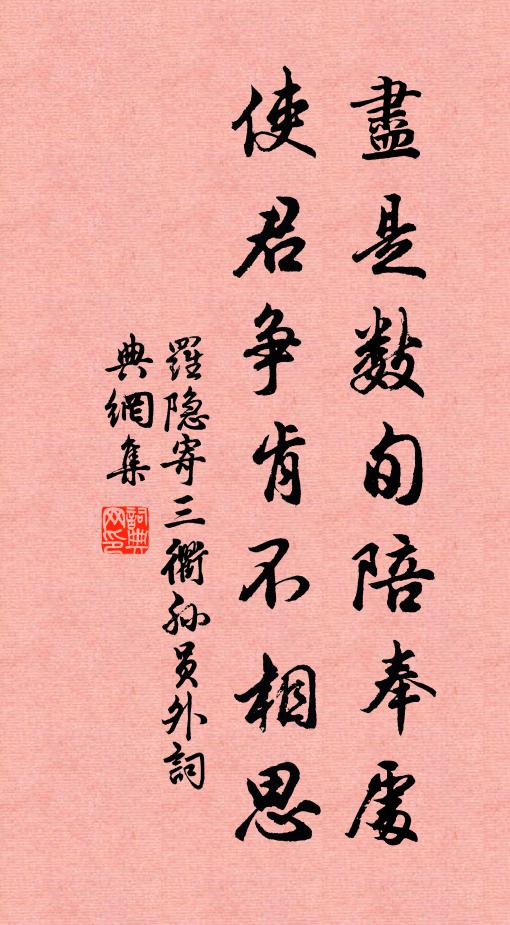 盡是数旬陪奉處
使君争肯不相思
羅隐寄三衢孙員外詞
典網集
詞典網印